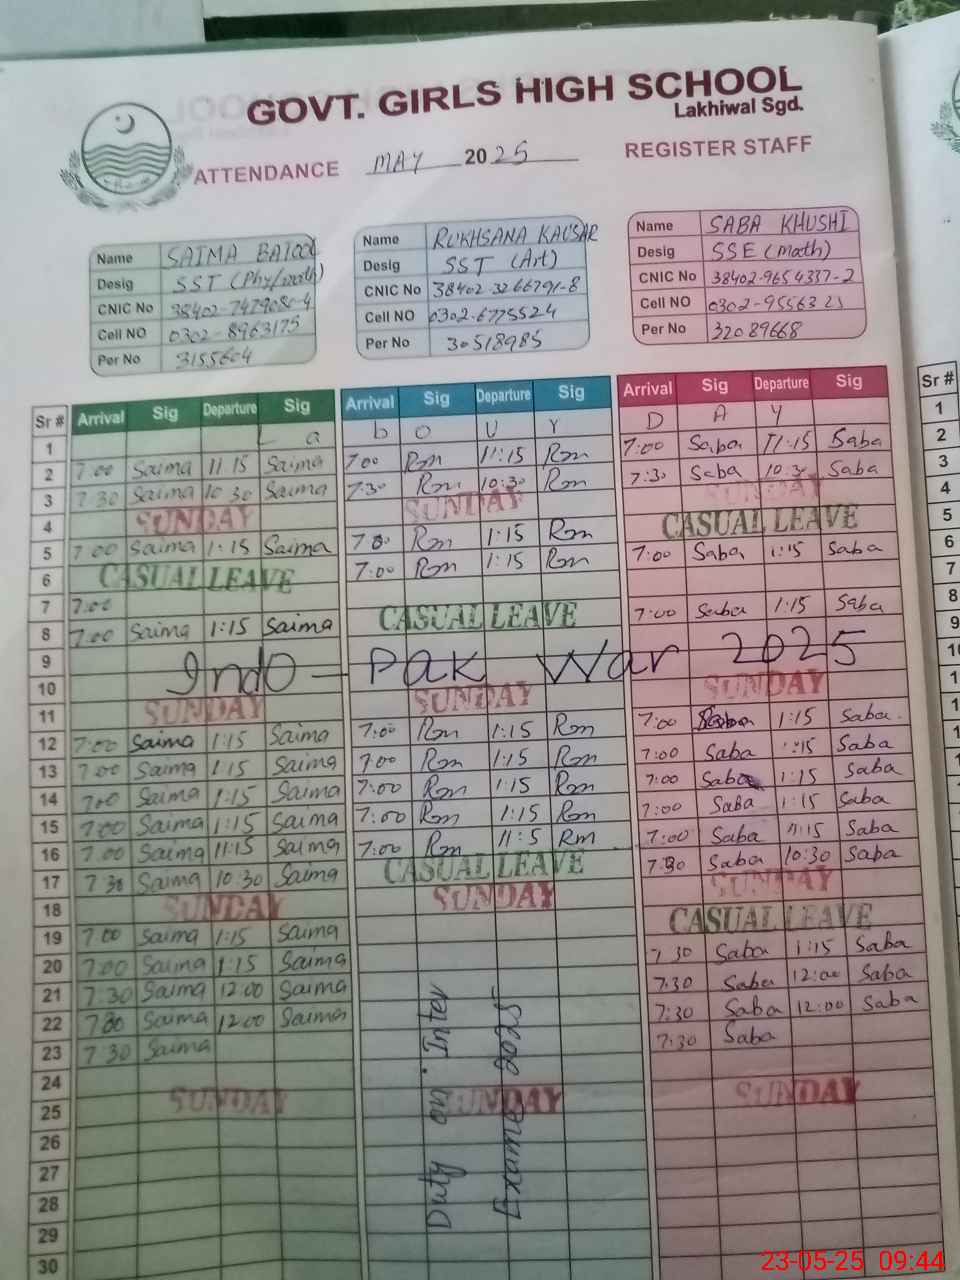 GOVT. GIRLS HIGH SCHOOL
Lakhiwal Sgd.
ATTENDANCE MAY 2025 REGISTER STAFF
Name SAIMA BATOOL
Desig SST (Phy/math)
CNIC No 38402-7479080-4
Cell NO 0302-8963175
Per No 3155604
Name RUKHSANA KAUSAR
Desig SST (Art)
CNIC No 38402-3266791-8
Cell NO 0302-6775524
Per No 30518985
Name SABA KHUSHI
Desig SSE (math)
CNIC No 38402-9654337-2
Cell NO 0302-9556323
Per No 32089668
Sr # Arrival Sig Departure Sig Arrival Sig Departure Sig Arrival Sig Departure Sig Sr #
1 L a b o u r D A Y 1
2 7:00 Saima 11:15 Saima 7:00 Rm 11:15 Rm 7:00 Saba 11:15 Saba 2
3 7:30 Saima 10:30 Saima 7:30 Rm 10:30 Rm 7:30 Saba 10:30 Saba 3
4 SUNDAY SUNDAY SUNDAY 4
5 7:00 Saima 1:15 Saima 7:00 Rm 1:15 Rm CASUAL LEAVE 5
6 CASUAL LEAVE 7:00 Rm 1:15 Rm 7:00 Saba 1:15 Saba 6
7 7:00 7
8 7:00 Saima 1:15 Saima CASUAL LEAVE 7:00 Saba 1:15 Saba 8
9 Indo - Pak War 2025 9
10
11 SUNDAY SUNDAY SUNDAY
12 7:00 Saima 1:15 Saima 7:00 Rm 1:15 Rm 7:00 Saba 1:15 Saba
13 7:00 Saima 1:15 Saima 7:00 Rm 1:15 Rm 7:00 Saba 1:15 Saba
14 7:00 Saima 1:15 Saima 7:00 Rm 1:15 Rm 7:00 Saba 1:15 Saba
15 7:00 Saima 1:15 Saima 7:00 Rm 1:15 Rm 7:00 Saba 1:15 Saba
16 7:00 Saima 11:15 Saima 7:00 Rm 11:5 Rm 7:00 Saba 11:15 Saba
17 7:30 Saima 10:30 Saima CASUAL LEAVE 7:30 Saba 10:30 Saba
18 SUNDAY SUNDAY SUNDAY
19 7:00 Saima 1:15 Saima CASUAL LEAVE
20 7:00 Saima 1:15 Saima 7:30 Saba 1:15 Saba
21 7:30 Saima 12:00 Saima 7:30 Saba 12:00 Saba
22 7:30 Saima 12:00 Saima 7:30 Saba 12:00 Saba
23 7:30 Saima 7:30 Saba
24
25 SUNDAY SUNDAY SUNDAY
26
27
28
29
30
Duty on Inter
Exame 2025
23-05-25 09:44